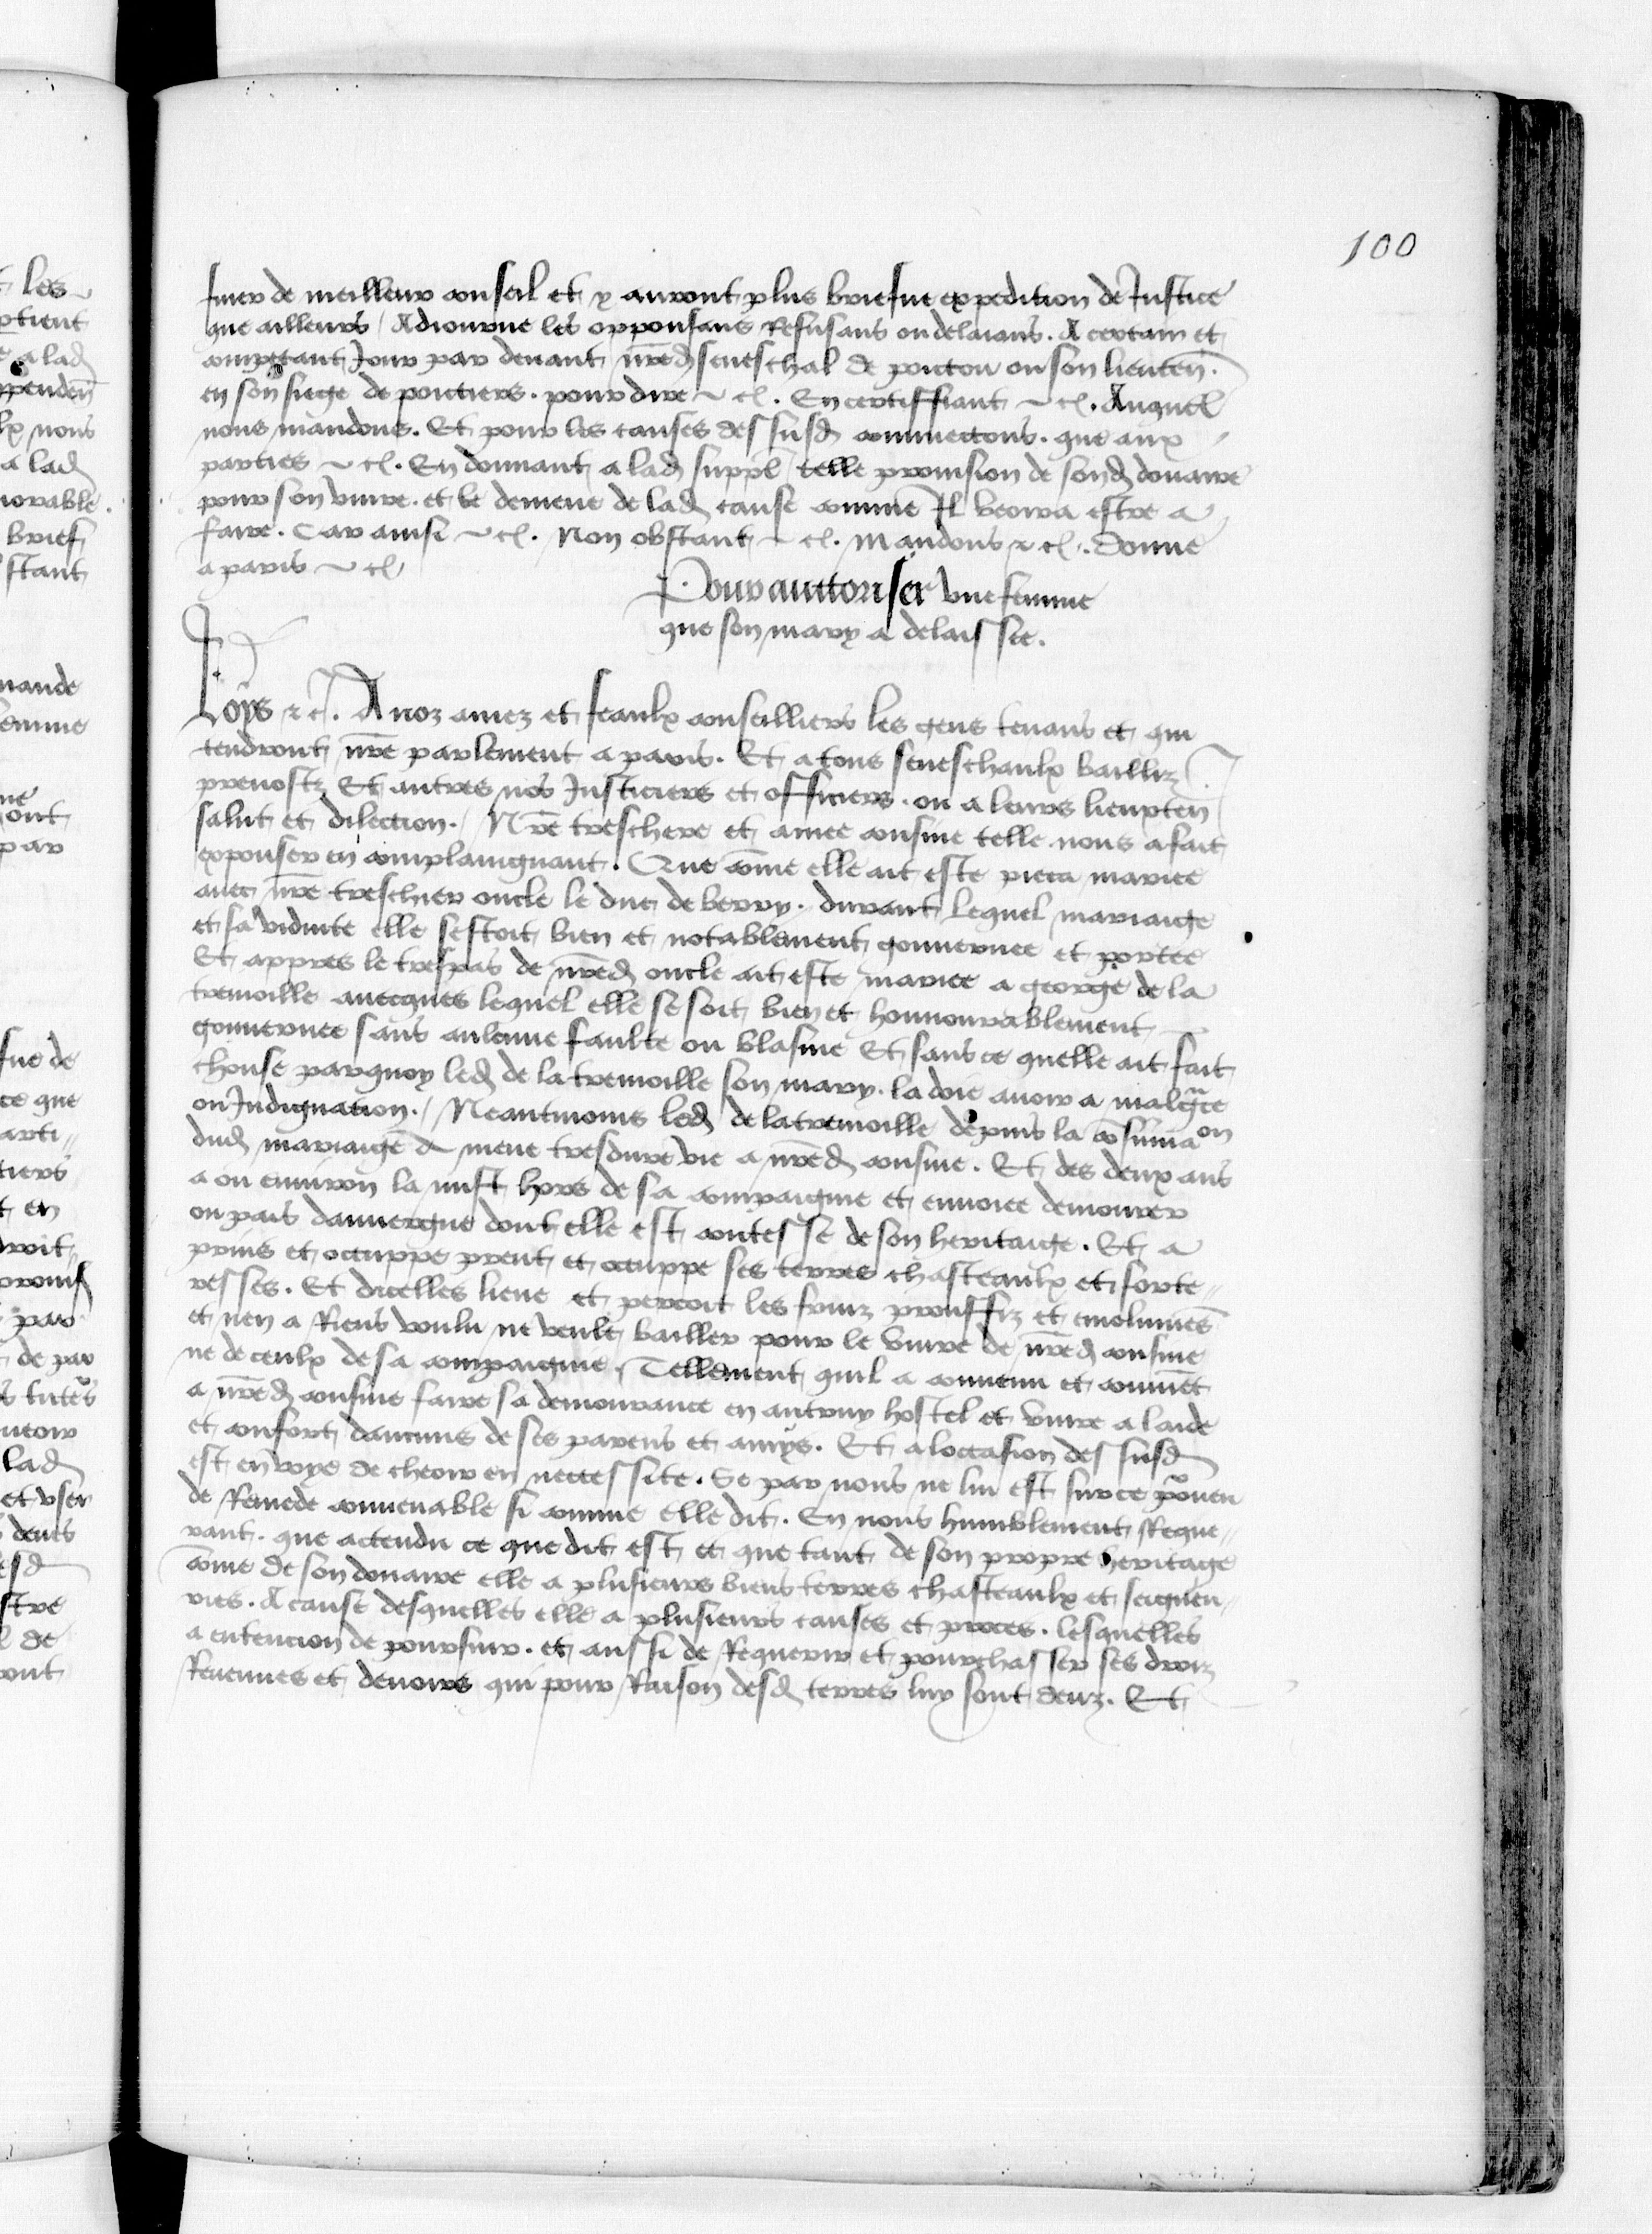 100
finer de meilleur conseil et y auront plus briefue expedition de Justice
que ailleurs / Adiourne les opposans Refusans ou delaians . A certain et
competant Jour par deuant nred seneschal de poictou ou son lieuten .
en son siege de poictiers . pour dire ~ cͤ . En certiffiant ~ cͤ . Auquel
nous mandons . Et pour les causes dessusd commectons . que aux
parties ~ cͤ . En donnant a lad suppl telle prouision de sond douaire
pour son viure . et le demene de lad cause comme Il verra estre a
faire . Car ainsi ~ cͤ . Non obstant ~ cͤ . Mandons ~ cͤ . Donne
a paris ~ cͤ
Pour auttoriser vne femme
que son mary a delaissee .
Loys ~ cͤ . A noz amez et feaulx conseilliers les gens tenans et qui
tendront nre parlement a paris . Et a tous seneschaulx bailliz
preuostz Et autres nos Justiciers et officiers . ou a leurs lieupten
salut et dilection . Nre treschere et amee cousine telle . nous a fait
exponser en complaingnant . Que come elle ait este pieca mariee
auec nre treschier oncle le duc de berry . durant lequel mariaige
et sa viduite elle sestoit bien et notablement gouuernee et portee
Et appres le trespas de nred oncle ait este mariee a george de la
tremoille auecques lequel elle se soit bien et honnourablement
gouuernee sans aulcune faulte ou blasme Et sans ce quelle ait fait
chouse parquoy led de latremoille son mary . la doie auoir a malgrace
ou Indignation . / Neantmoins led de latremoille depuis la cosumaon
dud mariaige a mene tresdure vie a nred cousine . Et des deux ans
a ou enuiron la mist hors de sa compaignie et enuoiee demourer
ou pais dauuergne dont elle est contesse de son heritaige . Et a
prins et occuppe prent et occuppe ses terres chasteaulx et forte
resses . Et dicelles lieue et percoit les fruiz prouffiz et emolumens
et nen a Riens voulu ne veult bailler pour le viure de nred cousine
ne de ceulx de sa compaignie . Tellement quil a conuenu et conuiet
a nred cousine faire sa demourance en autruy hostel et viure a laide
et confort daucuns de ses parens et amys . Et a loccasion dessusd
est en voye de cheoir en neccessite . Se par nous ne lui est surce pouen
de Remede conuenable si comme elle dit . En nous humblement Reque
rant . que actendu ce que dit est et que tant de son propre heritage
come de son douaire elle a plusieurs biens terres chasteaulx et seigneu
ries . A cause desquelles elle a plusieurs causes et proces . lesquelles
a entencion de poursuir . et aussi de Requerir et pourchasser ses droiz
Reuenues et deuoirs qui pour Raison desd terres luy sont deuz . Et